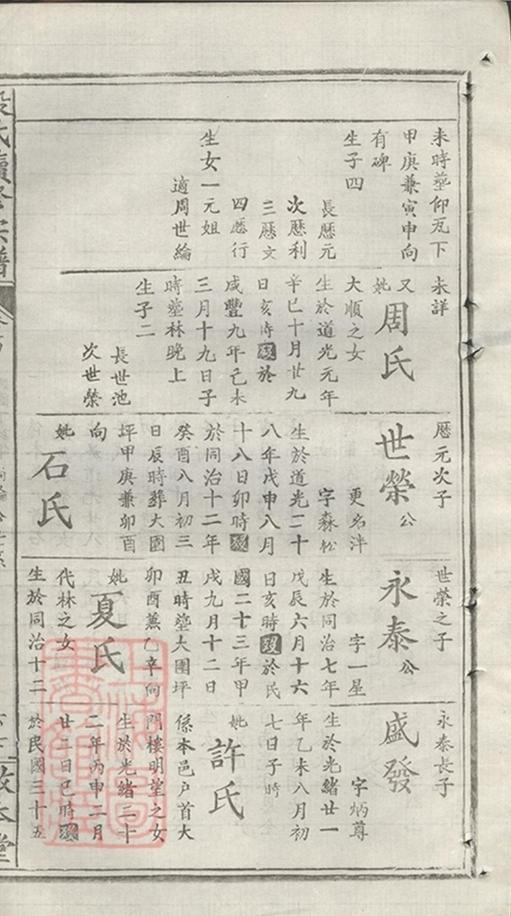 未時塟仰瓦下
甲庚兼寅申向
有碑
生子四
長厯元
次厯利
三厯文
四厯行
生女一元姐
適周世綸
未詳
又
妣周氏
大順之女
生於道光元年
辛巳十月廿九
日亥時殁於
咸豐九年己未
三月十九日子
時塟林晚上
生子二
長世池
次世榮
厯元次子
世榮公
更名泮
字森松
生於道光二十
八年戊申八月
十八日卯時殁
於同治十二年
癸酉八月初三
日辰時葬大園
坪甲庚兼卯酉
向
妣石氏
世榮之子
永泰公
字一星
生於同治七年
戊辰六月十六
日亥時殁於民
國二十三年甲
戌九月十二日
丑時塟大園坪
卯酉兼乙辛向
妣夏氏
代林之女
生於同治十二
永泰長子
盛發
字炳尊
生於光緒廿一
年乙未八月初
七日子時
妣許氏
係本邑户首大
門樓明堂之女
生於光緒二十
二年丙申二月
廿二日巳時殁
於民國三十五
氏續修宗譜
敬本堂